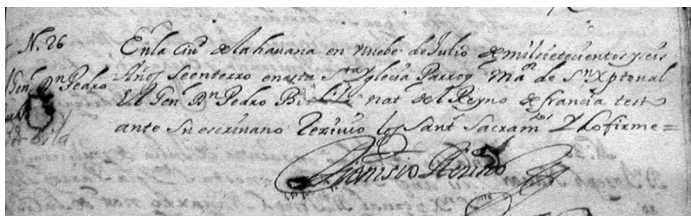 N. 26
En la Ciu.d de la havana en nuebe de Julio de mil sietecientos y seis
Gen.l Dn Pedro
Años se enterro en esta S.ta Yglecia Parroq. ma de Sn Xptoval
El Gen.l Dn Pedro Bi Lila nat. del Reyno de francia test.o
ante su escrivano Rerivio los Sant.s Sacram.tos Y lo firme=
Dionisio Resino